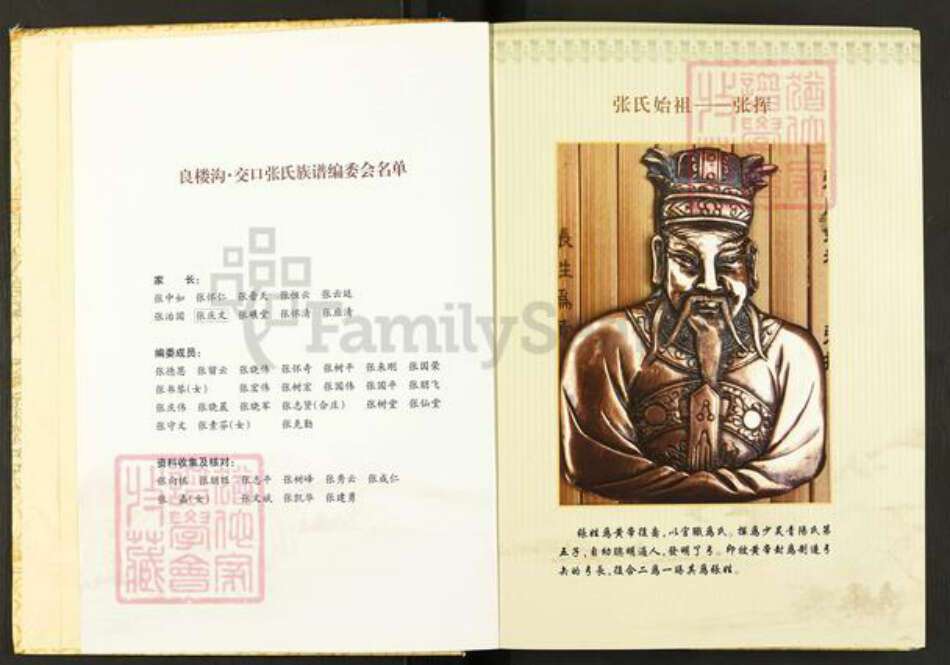 良楼沟·交口张氏族谱编委会名单
家 长:
张中如 张怀仁 张晋天 张恒云 张云廷
张治国 张庆文 张曦堂 张怀清 张应清
编委成员:
张德恩 张留云 张晓伟 张怀奇 张树平 张来刚 张国荣
张书琴(女) 张宏伟 张树宏 张国伟 张国平 张朋飞
张庆伟 张晓晨 张晓军 张志贤(合庄) 张树堂 张仙堂
张守文 张素芬(女) 张克勤
资料收集及核对:
张向栋 张朋胜 张志平 张树峰 张秀云 张成仁
张 磊(女) 张文斌 张凯华 张建勇
FamilyS
张氏始祖——张挥
張姓爲黄帝後裔,以官職爲氏。揮爲少昊青陽氏第
五子,自幼聰明過人,發明了弓。即被黄帝封爲制造弓
矢的弓長,後合二爲一賜其爲張姓。